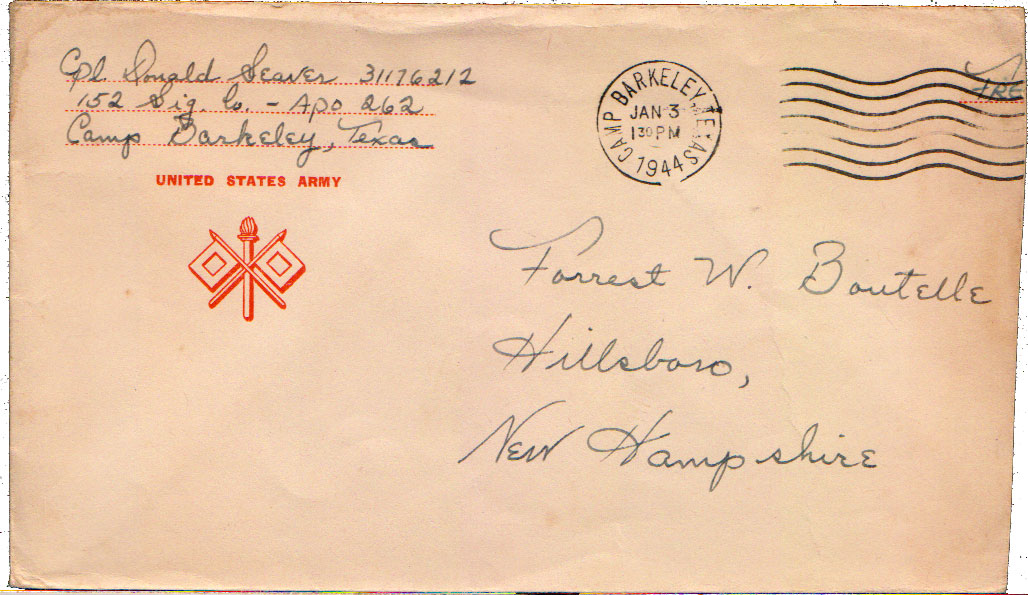 Cpl. Donald Seaver 31176212
152 Sig. Co. - Apo 262
Camp Barkeley, Texas
UNITED STATES ARMY
CAMP BARKELEY, TEXAS
JAN 3
1 30 PM
1944
FREE
Forrest W. Boutelle
Hillsboro,
New Hampshire